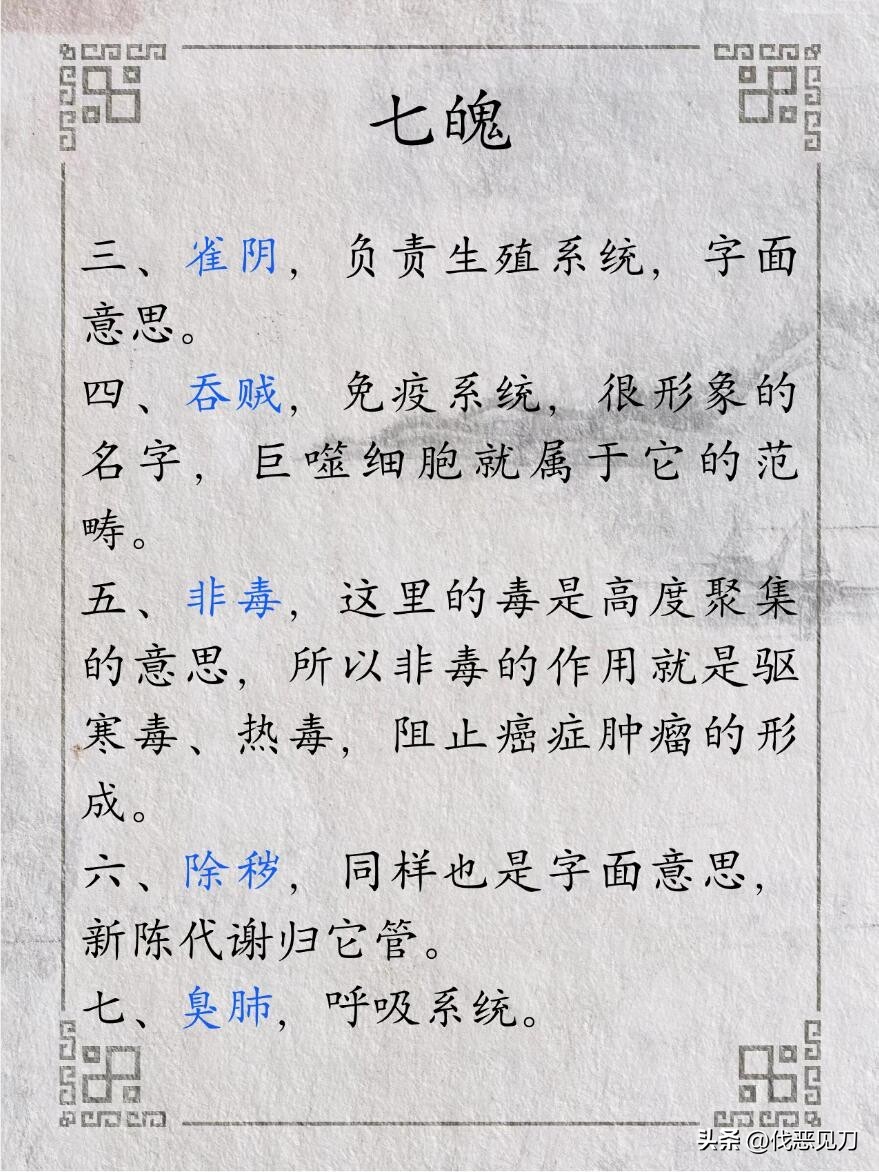 七魄
三、雀阴，负责生殖系统，字面
意思。
四、吞贼，免疫系统，很形象的
名字，巨噬细胞就属于它的范
畴。
五、非毒，这里的毒是高度聚集
的意思，所以非毒的作用就是驱
寒毒、热毒，阻止癌症肿瘤的形
成。
六、除秽，同样也是字面意思，
新陈代谢归它管。
七、臭肺，呼吸系统。
头条 @伐恶见刀